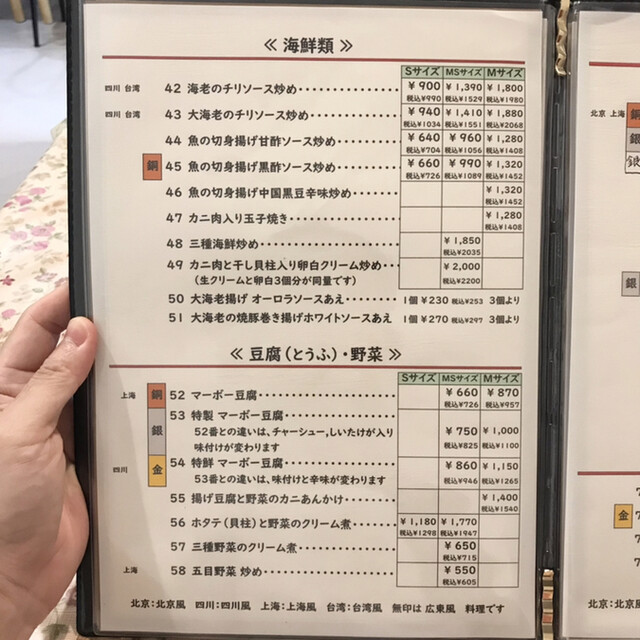 ≪ 海鮮類 ≫
Sサイズ MSサイズ Mサイズ
四川 台湾 42 海老のチリソース炒め・・・・・・・・・・・・・・ ¥900 ¥1,390 ¥1,800
税込¥990 税込¥1529 税込¥1980
四川 台湾 43 大海老のチリソース炒め・・・・・・・・・・・・ ¥940 ¥1,410 ¥1,880
税込¥1034 税込¥1551 税込¥2068
44 魚の切身揚げ甘酢ソース炒め・・・・・・・ ¥640 ¥960 ¥1,280
税込¥704 税込¥1056 税込¥1408
銅 45 魚の切身揚げ黒酢ソース炒め・・・・・・・ ¥660 ¥990 ¥1,320
税込¥726 税込¥1089 税込¥1452
46 魚の切身揚げ中国黒豆辛味炒め・・・・・ ¥1,320
税込¥1452
47 カニ肉入り玉子焼き・・・・・・・・・・・・・・・ ¥1,280
税込¥1408
48 三種海鮮炒め・・・・・・・・・・・・・・・・・・・・ ¥1,850
税込¥2035
49 カニ肉と干し貝柱入り卵白クリーム炒め・・・ ¥2,000
(生クリームと卵白3個分が同量です) 税込¥2200
50 大海老揚げ オーロラソースあえ 1個 ¥230 税込¥253 3個より
51 大海老の焼豚巻き揚げホワイトソースあえ 1個 ¥270 税込¥297 3個より
≪ 豆腐(とうふ)・野菜 ≫
Sサイズ MSサイズ Mサイズ
上海 銅 52 マーボー豆腐・・・・・・・・・・・・・・・・・・・・ ¥660 ¥870
税込¥726 税込¥957
銀 53 特製 マーボー豆腐・・・・・・・・・・・・・・・・
52番との違いは、チャーシュー,しいたけが入り ¥750 ¥1,000
味付けが変わります 税込¥825 税込¥1100
四川 金 54 特鮮 マーボー豆腐・・・・・・・・・・・・・・・・ ¥860 ¥1,150
53番との違いは、味付けと辛味が変わります 税込¥946 税込¥1265
55 揚げ豆腐と野菜のカニあんかけ・・・・・・ ¥1,400
税込¥1540
56 ホタテ(貝柱)と野菜のクリーム煮・・・・・ ¥1,180 ¥1,770
税込¥1298 税込¥1947
57 三種野菜のクリーム煮・・・・・・・・・・・・・ ¥650
税込¥715
上海 58 五目野菜 炒め・・・・・・・・・・・・・・・・・・・ ¥550
税込¥605
北京:北京風 四川:四川風 上海:上海風 台湾:台湾風 無印は 広東風 料理です
北京 上海 銅
銀
銀
金
北京:北京